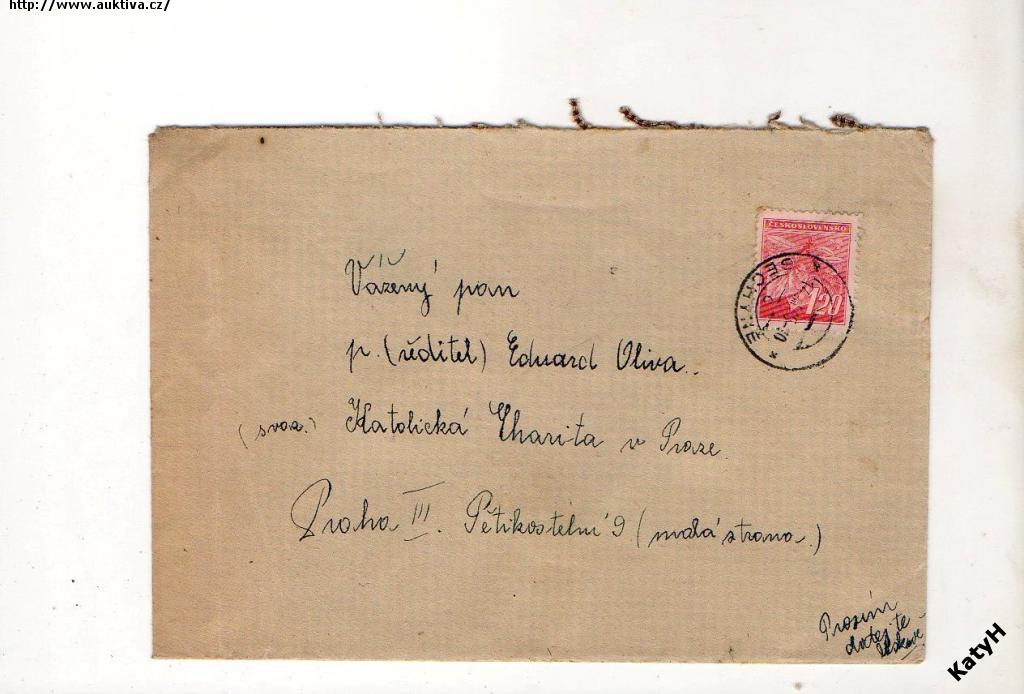 http://www.auktiva.cz/
ČESKOSLOVENSKO
1.20
BECHYNĚ
Vážený pan
p. (ředitel) Eduard Oliva.
(svaz.) Katolická Charita v Praze.
Praha III. Pětikostelní 9 (malá strana.)
Prosím
KatyH